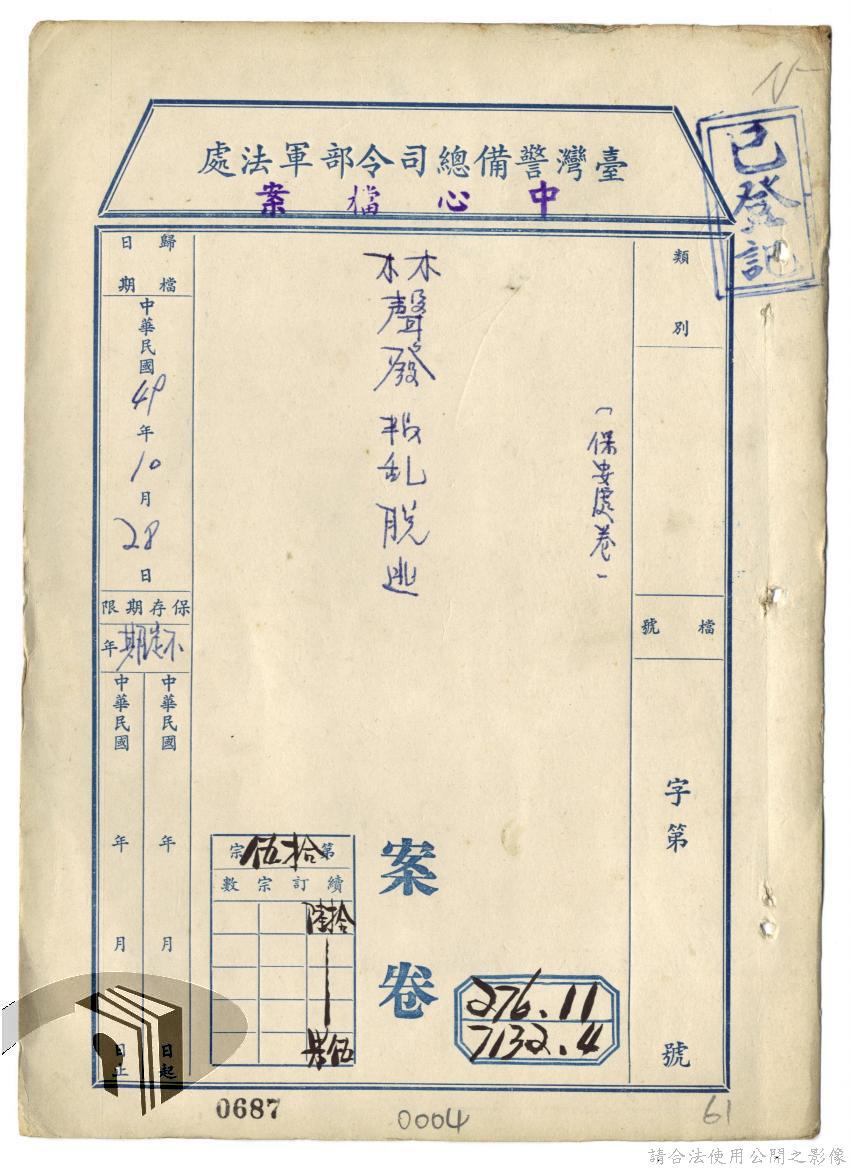 臺灣警備總司令部軍法處
中心檔案
已登記
類別
檔號
字第
號
(保安處卷)
林聲發叛乱脫逃
案卷
276.11
7132.4
第拾伍宗
續訂宗數
拾陸
歸檔日期
中華民國49年10月28日
保存期限
不定期年
中華民國 年 月 日起
中華民國 年 月 日止
0687
0004
61
請合法使用公開之影像